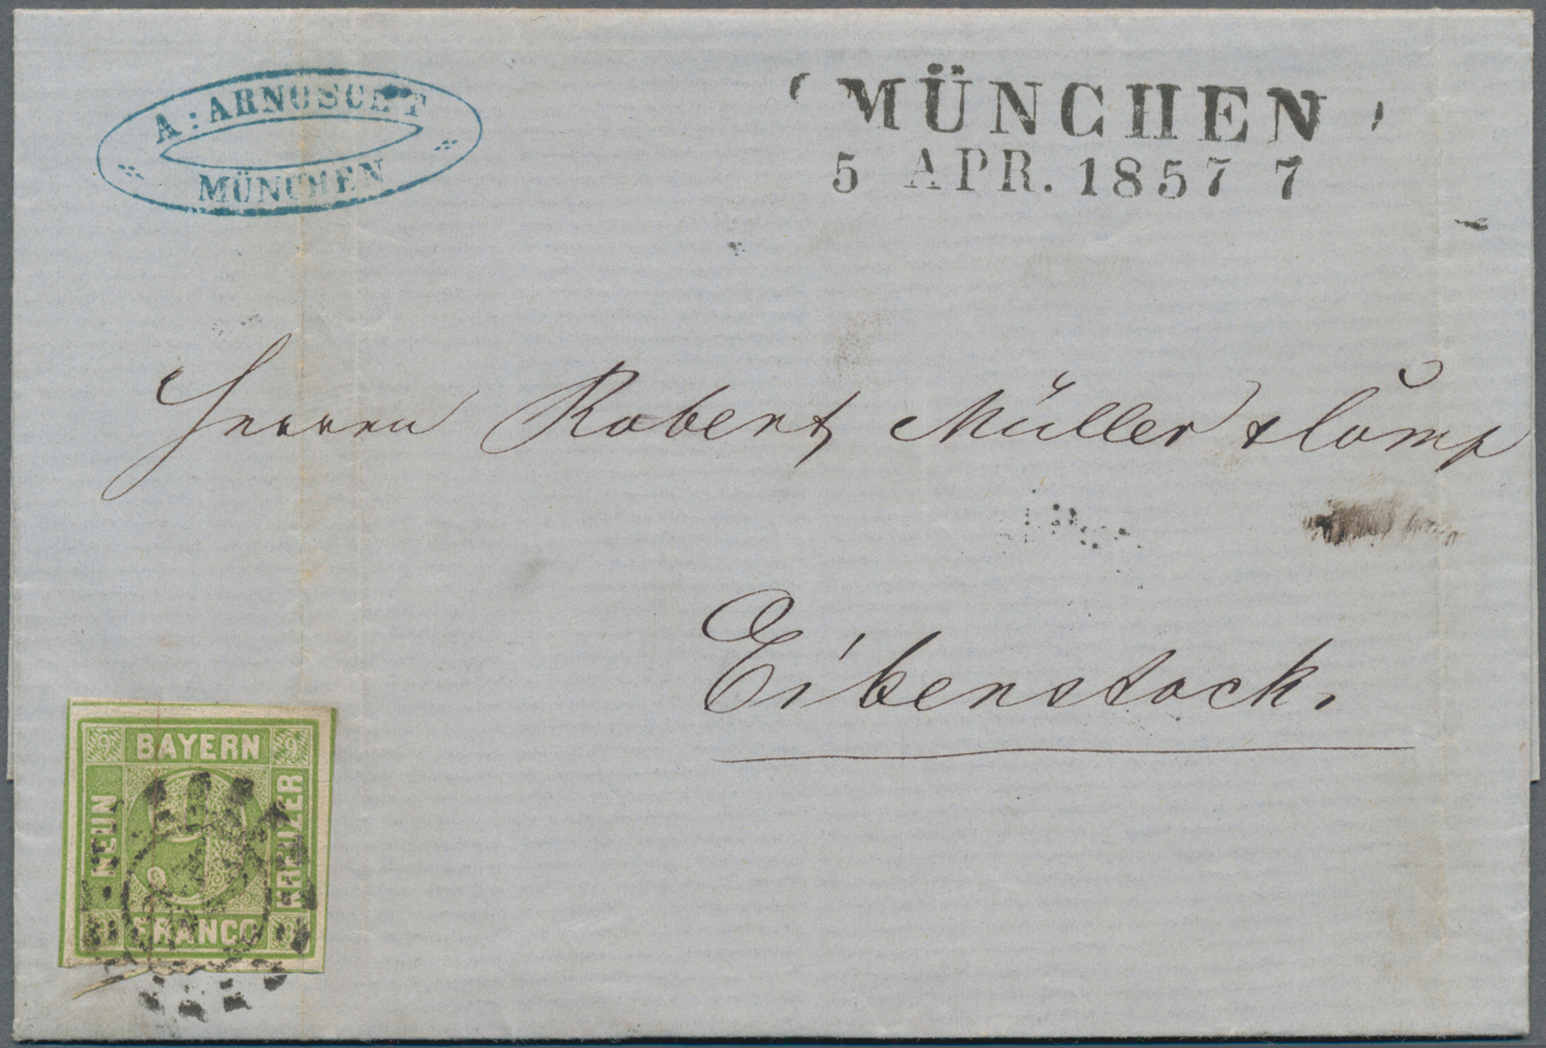 A: ARNOSCHT
MÜNCHEN
MÜNCHEN
5 APR. 1857 7
Herren Robert Müller & Comp
Eibenstock.
BAYERN
NEUN
KREUZER
FRANCO
9
9
9